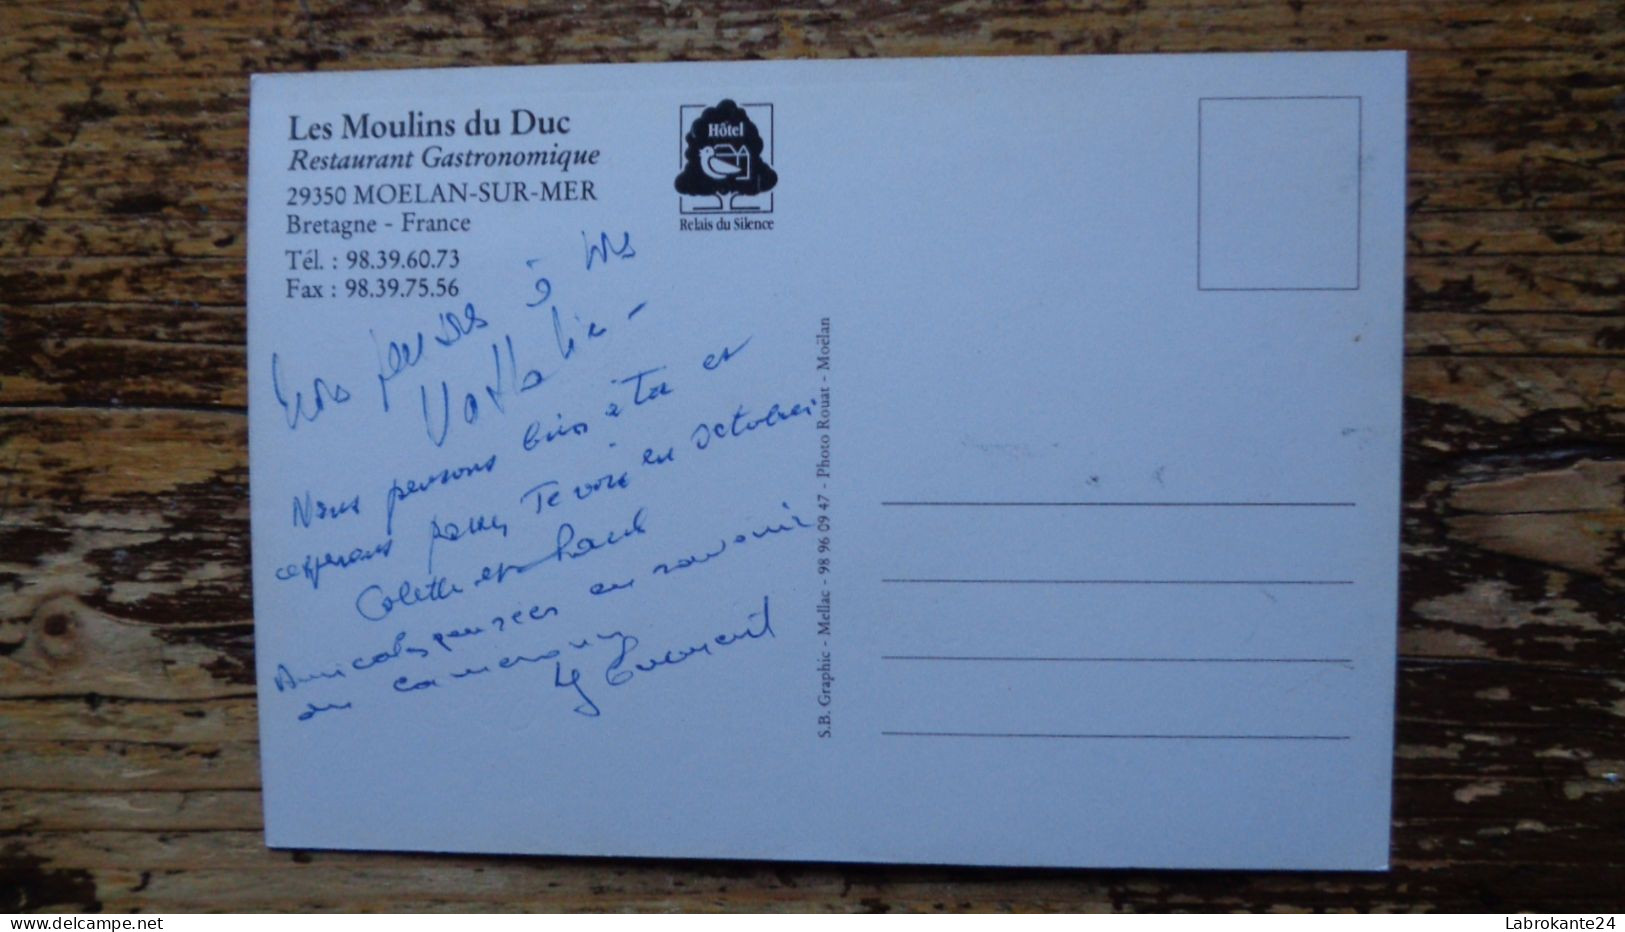 Les Moulins du Duc
Restaurant Gastronomique
29350 MOELAN-SUR-MER
Bretagne - France
Tél. : 98.39.60.73
Fax : 98.39.75.56
Hôtel
Relais du Silence
à
Nous pensons bien à toi et
espérons Te voir en octobre
Colette et
Amicales pensées en souvenir
du
S.B. Graphic - Mellac - 98 96 09 47 - Photo Rouat - Moëlan
Labrokante24